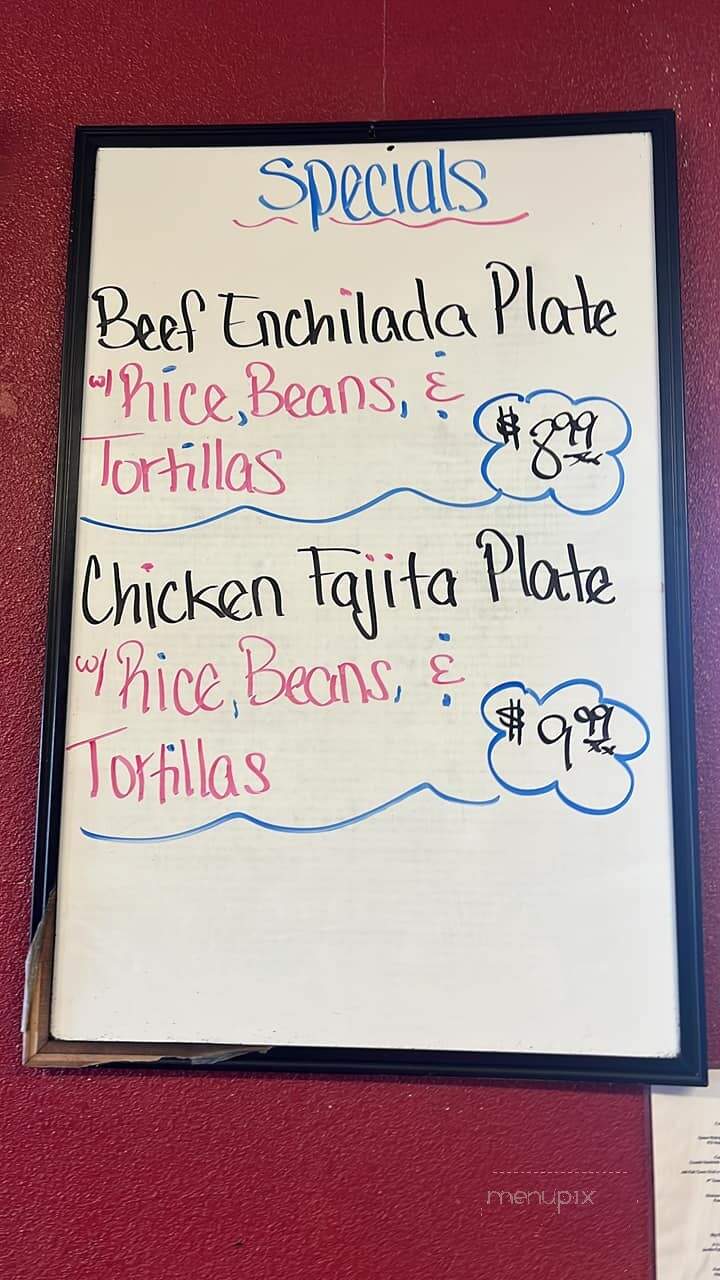 Specials
Beef Enchilada Plate
w/ Rice, Beans, &
Tortillas
$8.99
Chicken Fajita Plate
w/ Rice, Beans, &
Tortillas
$9.99
menupix